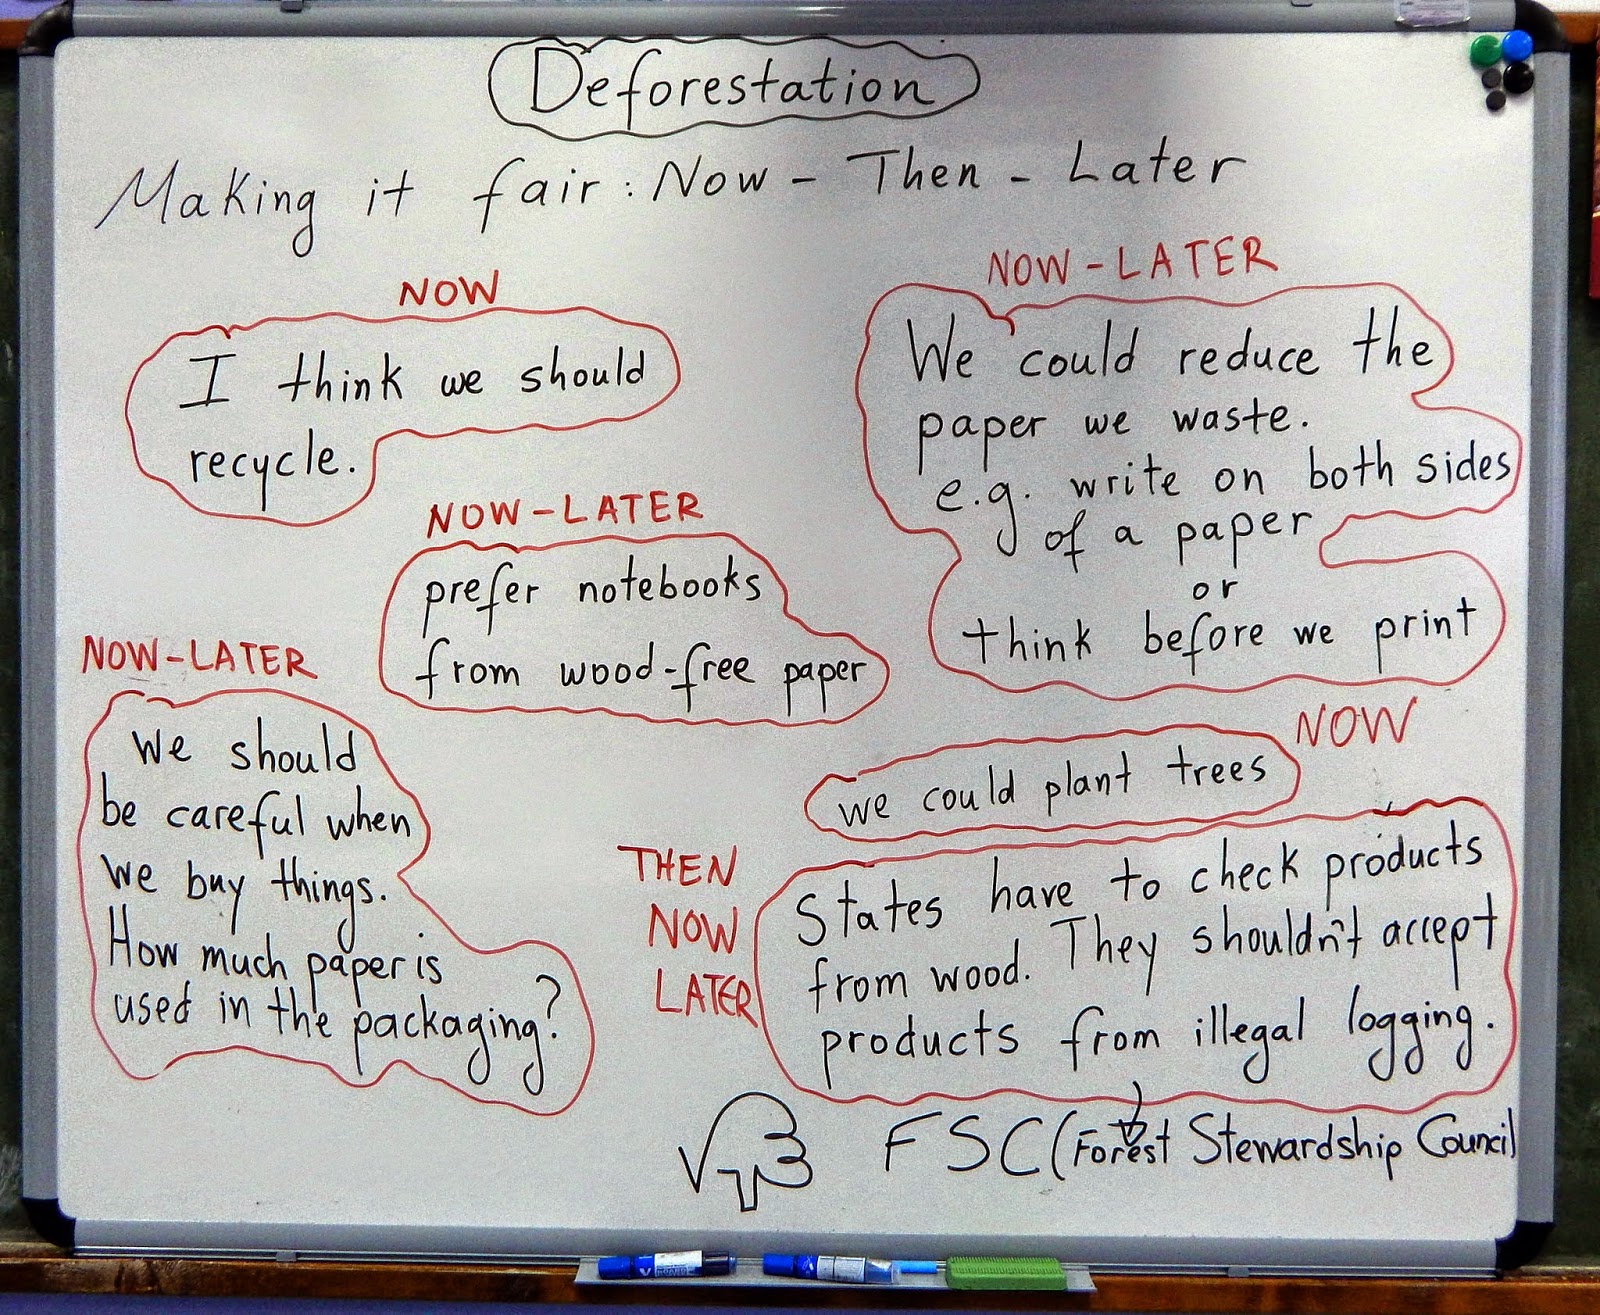 Deforestation
Making it fair: Now - Then - Later
NOW
I think we should
recycle.
NOW-LATER
We could reduce the
paper we waste.
e.g. write on both sides
of a paper
or
think before we print
NOW-LATER
prefer notebooks
from wood-free paper
NOW-LATER
We should
be careful when
we buy things.
How much paper is
used in the packaging?
NOW
we could plant trees
THEN
NOW
LATER
States have to check products
from wood. They shouldn't accept
products from illegal logging.
FSC (Forest Stewardship Council